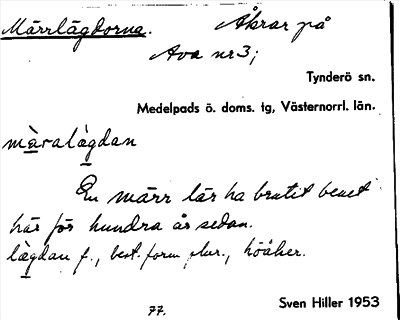 Märrlägdorna. Åkrar på
Ava nr 3;
Tynderö sn.
Medelpads ö. doms. tg, Västernorrl. län.
màralàgdan
En märr lär ha brutit benet
här för hundra år sedan.
làgdan f., best. form plur., höåker.
77.
Sven Hiller 1953